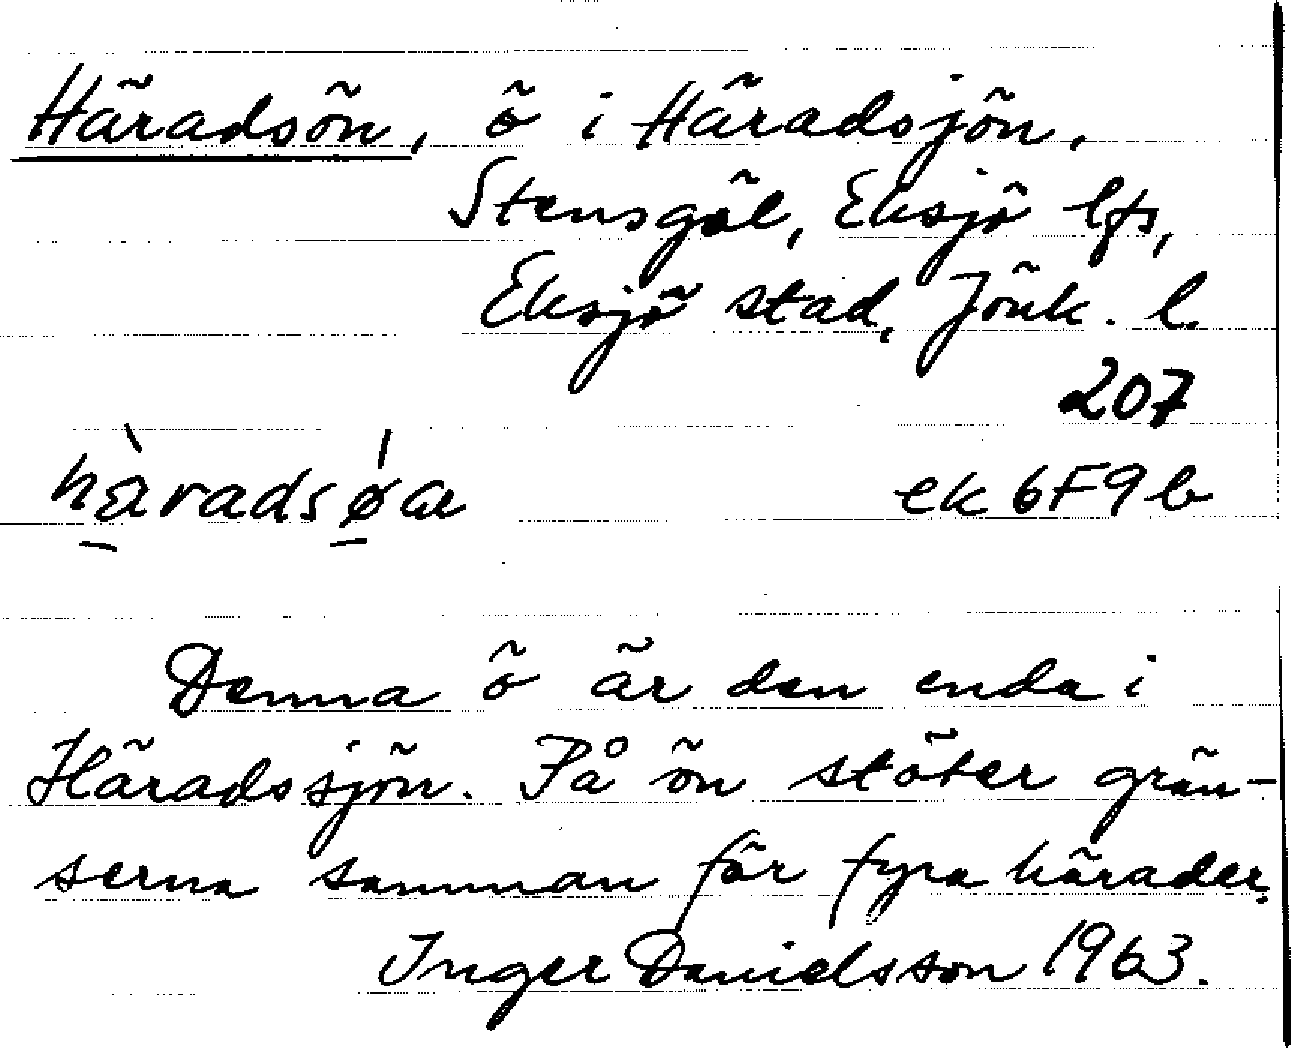 Häradsön, ö i Häradsjön,
Stensgöl, Eksjö lfs,
Eksjö stad, Jönk. l.
207
hàradsøn ek 6F9b
Denna ö är den enda i
Häradssjön. På ön stöter grän-
serna samman för fyra härader.
Inger Danielsson 1963.